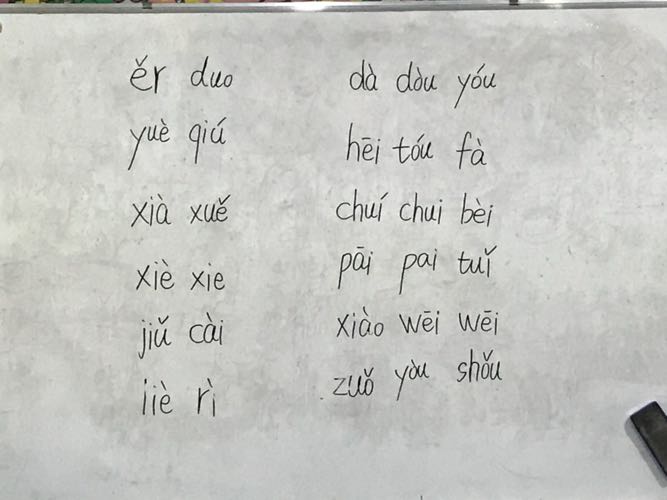 ěr duo
yuè qiú
xià xuě
xiè xie
jiǔ cài
jiè rì
dà dòu yóu
hēi tóu fà
chuí chui bèi
pāi pai tuǐ
xiào wēi wēi
zuǒ yòu shǒu